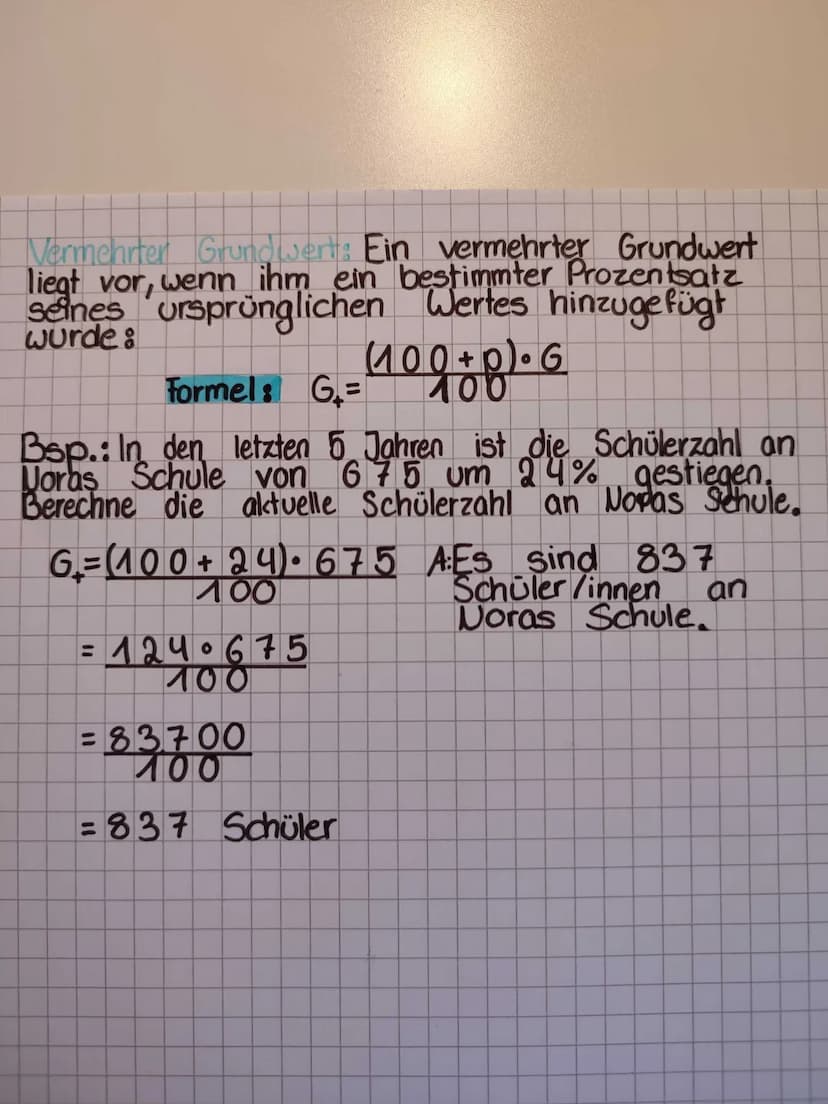 Vermehrter Grundwert: Ein vermehrter Grundwert
liegt vor, wenn ihm ein bestimmter Prozentsatz
seines ursprünglichen Wertes hinzugefügt
wurde:
(100+p)·G
Formel: G₊=
100
Bsp.: In den letzten 5 Jahren ist die Schülerzahl an
Noras Schule von 675 um 24% gestiegen.
Berechne die aktuelle Schülerzahl an Noras Schule.
G₊=(100+24)·675 A:Es sind 837
100 Schüler/innen an
Noras Schule.
=124·675
100
=83700
100
=837 Schüler